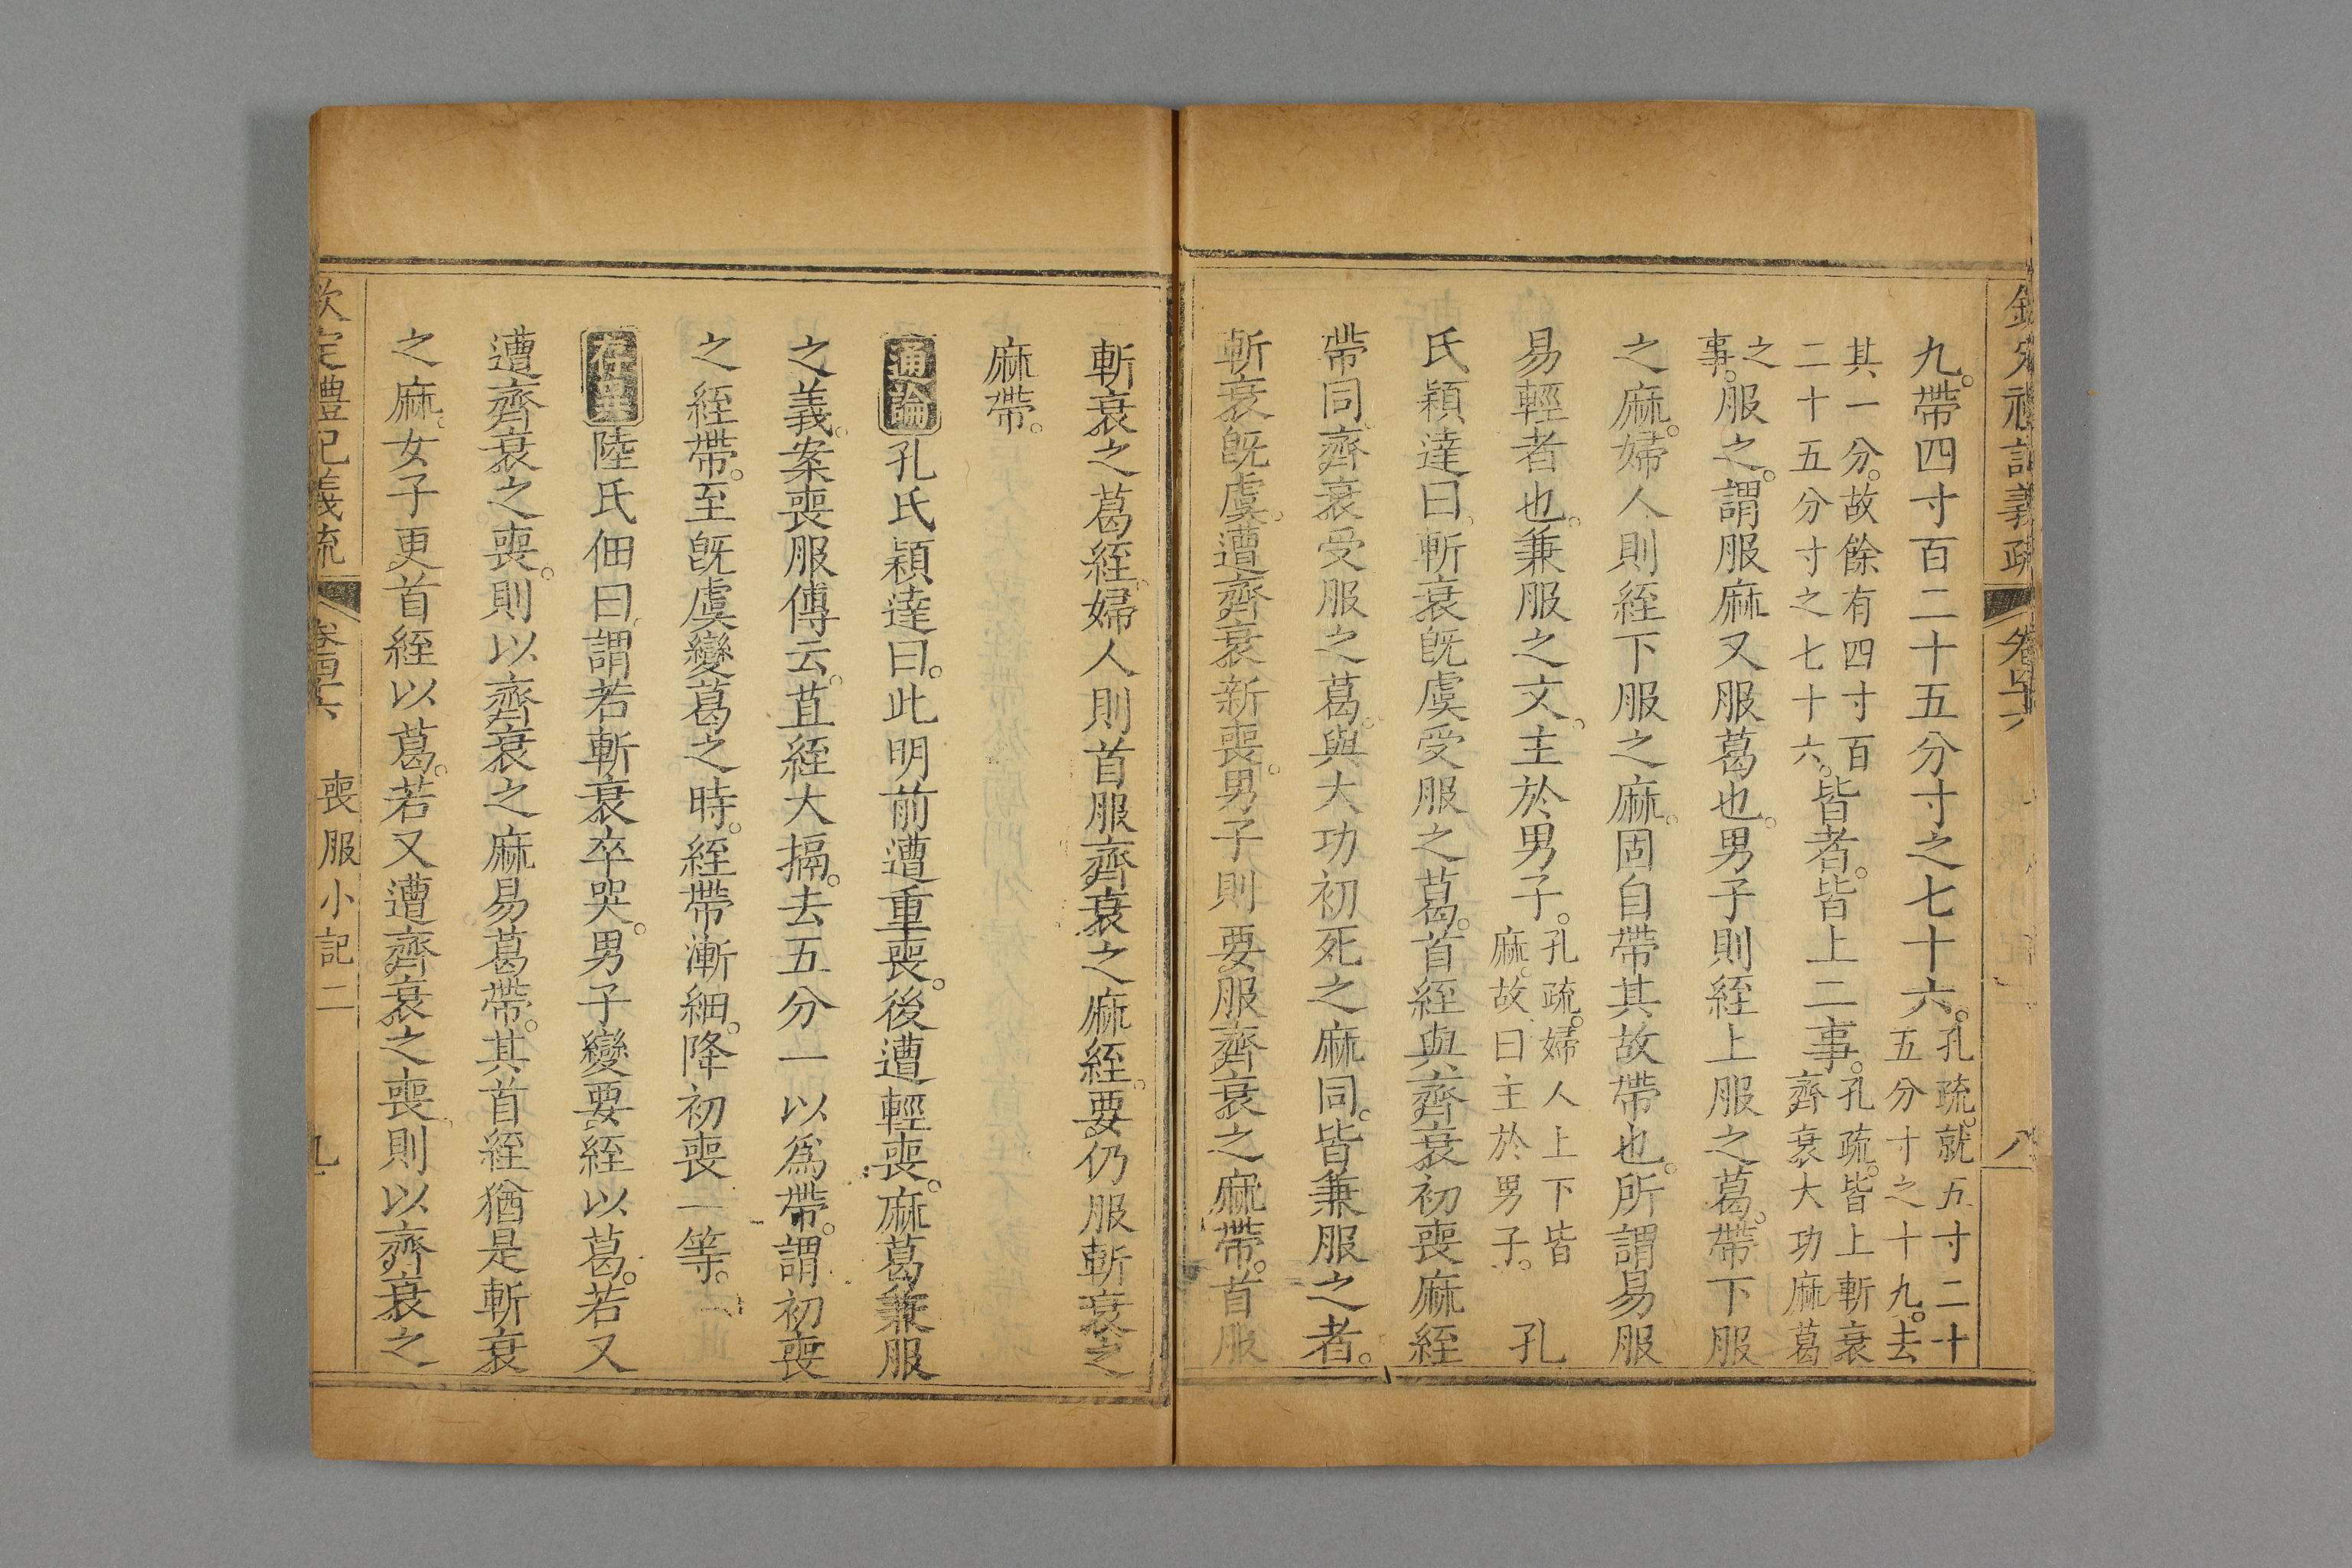 欽定禮記義疏 卷四十六 八
九。帶四寸百二十五分寸之七十六。孔疏。就五寸二十
五分寸之十九。去
其一分。故餘有四寸百
二十五分寸之七十六。皆者。皆上二事。孔疏。皆上斬衰
齊衰大功麻葛
之
事。服之。謂服麻又服葛也。男子則絰上服之葛。帶下服
之麻。婦人則絰下服之麻。固自帶其故帶也。所謂易服
易輕者也。兼服之文。主於男子。孔疏。婦人上下皆
麻。故曰主於男子。 孔
氏穎達曰。斬衰既虞受服之葛。首絰與齊衰初喪麻絰
帶同。齊衰受服之葛。與大功初死之麻同。皆兼服之者。
斬衰既虞。遭齊衰新喪。男子則要服齊衰之麻帶。首服
斬衰之葛絰。婦人則首服齊衰之麻絰。要仍服斬衰之
麻帶。
通論 孔氏穎達曰。此明前遭重喪。後遭輕喪。麻葛兼服
之義。案喪服傳云。苴絰大搹。去五分一以為帶。謂初喪
之絰帶。至既虞變葛之時。絰帶漸細。降初喪一等。
存異 陸氏佃曰。謂若斬衰卒哭。男子變要絰以葛。若又
遭齊衰之喪。則以齊衰之麻易葛帶。其首絰猶是斬衰
之麻。女子更首絰以葛。若又遭齊衰之喪。則以齊衰之
欽定禮記義疏 卷四十六 喪服小記二 九